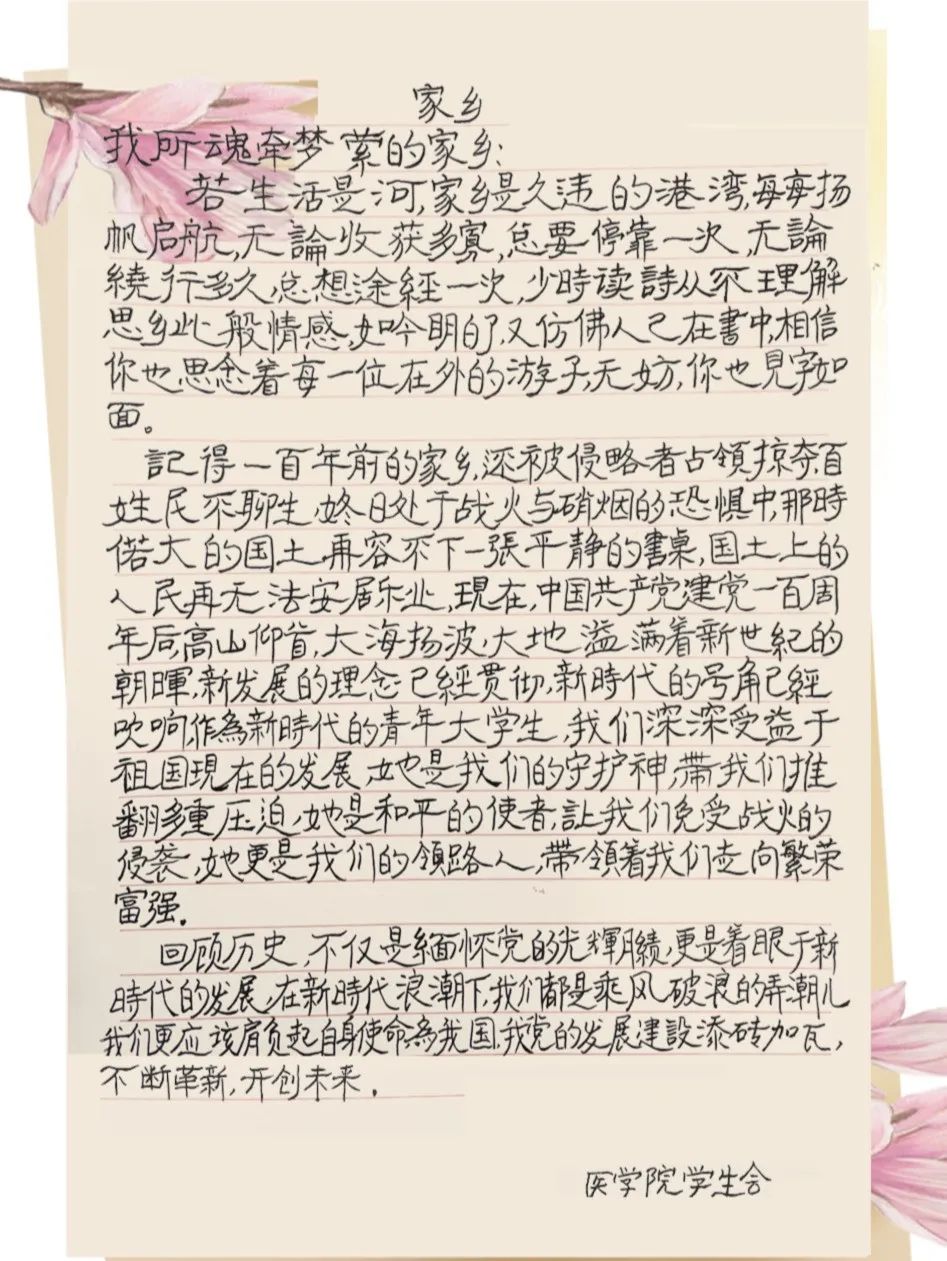 家乡
我所魂牵梦萦的家乡:
若生活是河,家乡是久违的港湾,每每扬
帆启航,无論收获多寡,总要停靠一次,无論
繞行多久,总想途經一次,少時读詩从不理解
思乡此般情感,如今明的了,又仿佛人已在書中,相信
你也思念着每一位在外的游子,无妨,你也見字如
面。
記得一百年前的家乡,还被侵略者占領,掠夺,百
姓民不聊生,终日处于战火与硝烟的恐惧中,那時
偌大的国土,再容不下一張平静的書桌,国土上的
人民再无法安居乐业,現在,中国共产党建党一百周
年后,高山仰首,大海扬波,大地溢满着新世紀的
朝暉,新发展的理念已經贯彻,新時代的号角已經
吹响,作為新時代的青年大学生,我们深深受益于
祖国現在的发展,她是我们的守护神,带我们推
翻多重压迫,她是和平的使者,讓我们免受战火的
侵袭,她更是我们的領路人,带領着我们走向繁荣
富强.
回顾历史,不仅是緬怀党的光輝,更是着眼于新
時代的发展,在新時代浪潮下,我们都是乘风破浪的弄潮儿
我们更应该肩负起自身使命為我国,我党的发展建設添砖加瓦,
不断革新,开创未来.
医学院学生会